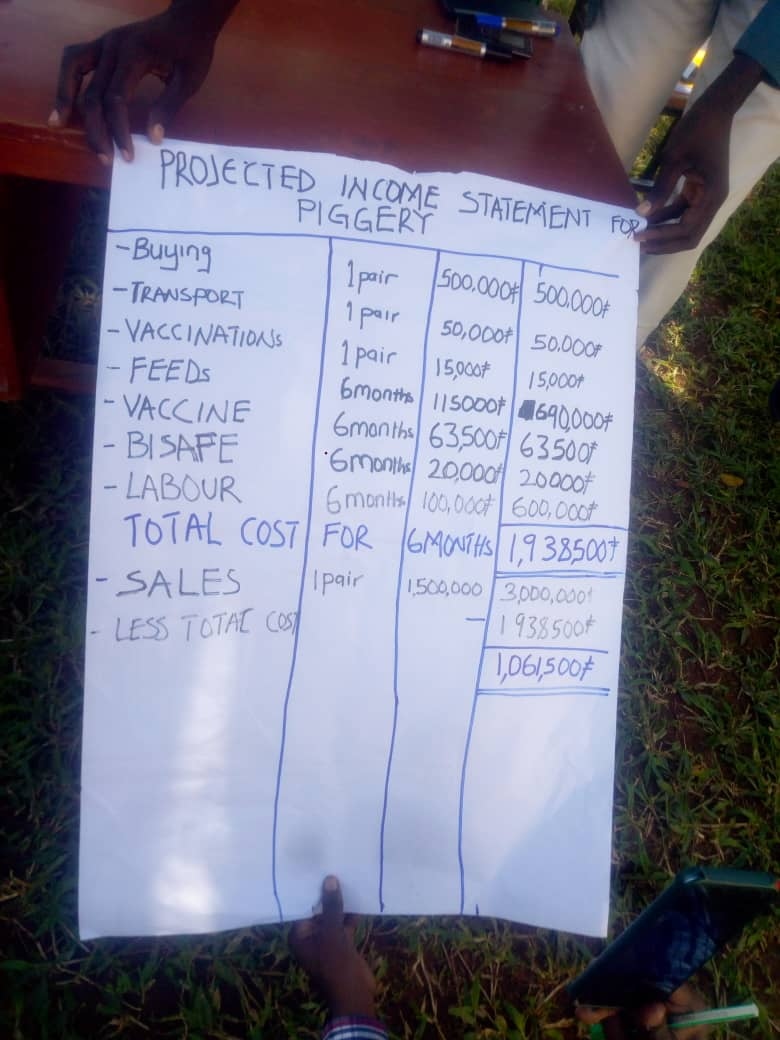 PROJECTED INCOME STATEMENT FOR
PIGGERY
- Buying 1 pair 500.000/= 500.000/=
- TRANSPORT 1 pair 50,000/= 50.000/=
- VACCINATIONs 1 pair 15,000/= 15,000/=
- FEEDs 6months 115000/= 690,000/=
- VACCINE 6months 63,500/= 63500/=
- BISAFE 6months 20,000/= 20000/=
- LABOUR 6months 100,000/= 600,000/=
TOTAL COST FOR 6MONTHS 1,938500/=
- SALES 1pair 1,500,000 3,000,000/=
- LESS TOTAL COST — 1938500/=
1,061,500/=